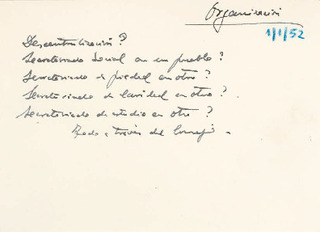 Organización
1/1/52
Descentralización?
Secretariado Social en un pueblo?
Secretariado de piedad en otro?
Secretariado de caridad en otro?
Secretariado de estudio en otro?
Todo a través del Consejo -